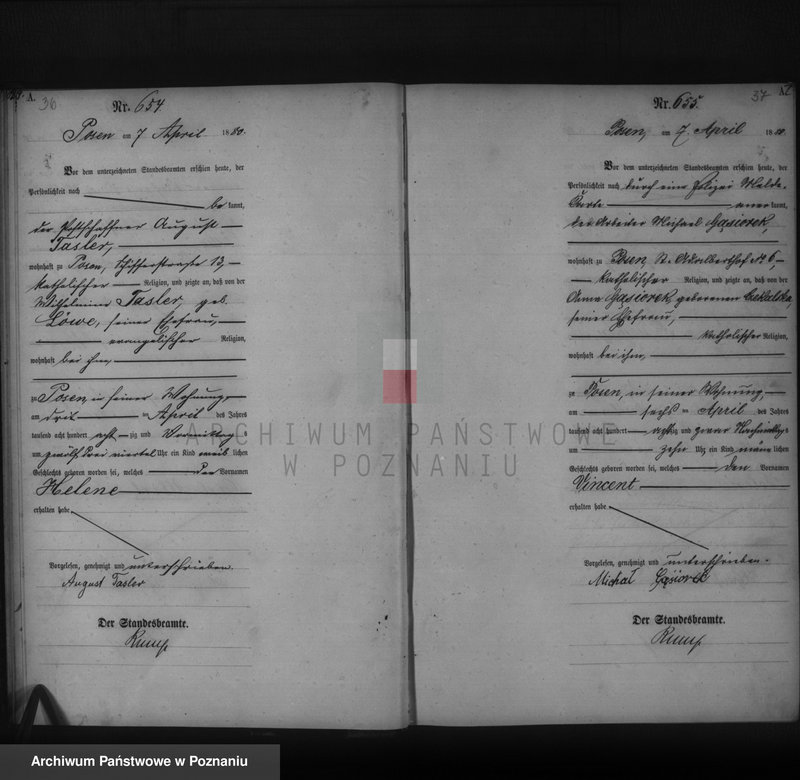 A.
36
Nr. 654.
Posen am 7 April 1880.
Vor dem unterzeichneten Standesbeamten erschien heute, der
Persönlichkeit nach bekannt,
der Postschaffner August
Tasler,
wohnhaft zu Posen, Schifferstraße 13,
katholischer Religion, und zeigte an, daß von der
Wilhelmine Tasler geb.
Löwe, seiner Ehefrau,
evangelischer Religion,
wohnhaft bei ihm,
zu Posen in seiner Wohnung,
am drit ten April des Jahres
tausend acht hundert acht zig und Vormittag s
um zwölf drei viertel Uhr ein Kind weib lichen
Geschlechts geboren worden sei, welches den Vornamen
Helene
erhalten habe.
Vorgelesen, genehmigt und unterschrieben.
August Tasler
Der Standesbeamte.
37
Nr. 655.
Posen, am 7. April 1880.
Vor dem unterzeichneten Standesbeamten erschien heute, der
Persönlichkeit nach durch eine Polizei Melde-
Karte anerkannt,
der Arbeiter Michael Gąsiorek,
wohnhaft zu Posen, St. Adalberthof No 6,
katholischer Religion, und zeigte an, daß von der
Anna Gąsiorek geborenen
seiner Ehefrau,
katholischer Religion,
wohnhaft bei ihm,
zu Posen, in seiner Wohnung,
am sechs ten April des Jahres
tausend acht hundert achtzig und zwar Nachmittags
um zehn Uhr ein Kind männ lichen
Geschlechts geboren worden sei, welches den Vornamen
Vincent
erhalten habe.
Vorgelesen, genehmigt und unterschrieben.
Michał Gąsiorek
Der Standesbeamte.
ARCHIWUM PAŃSTWOWE
W POZNANIU
Archiwum Państwowe w Poznaniu